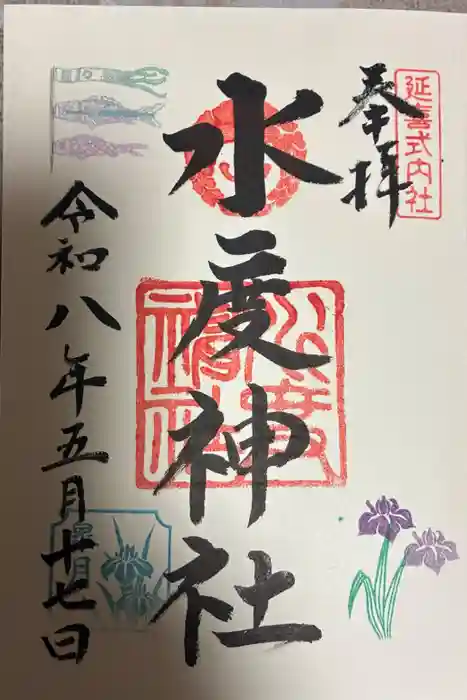 延喜式内社
奉拝
水度神社
水度神社
令和八年五月十七日
皐月